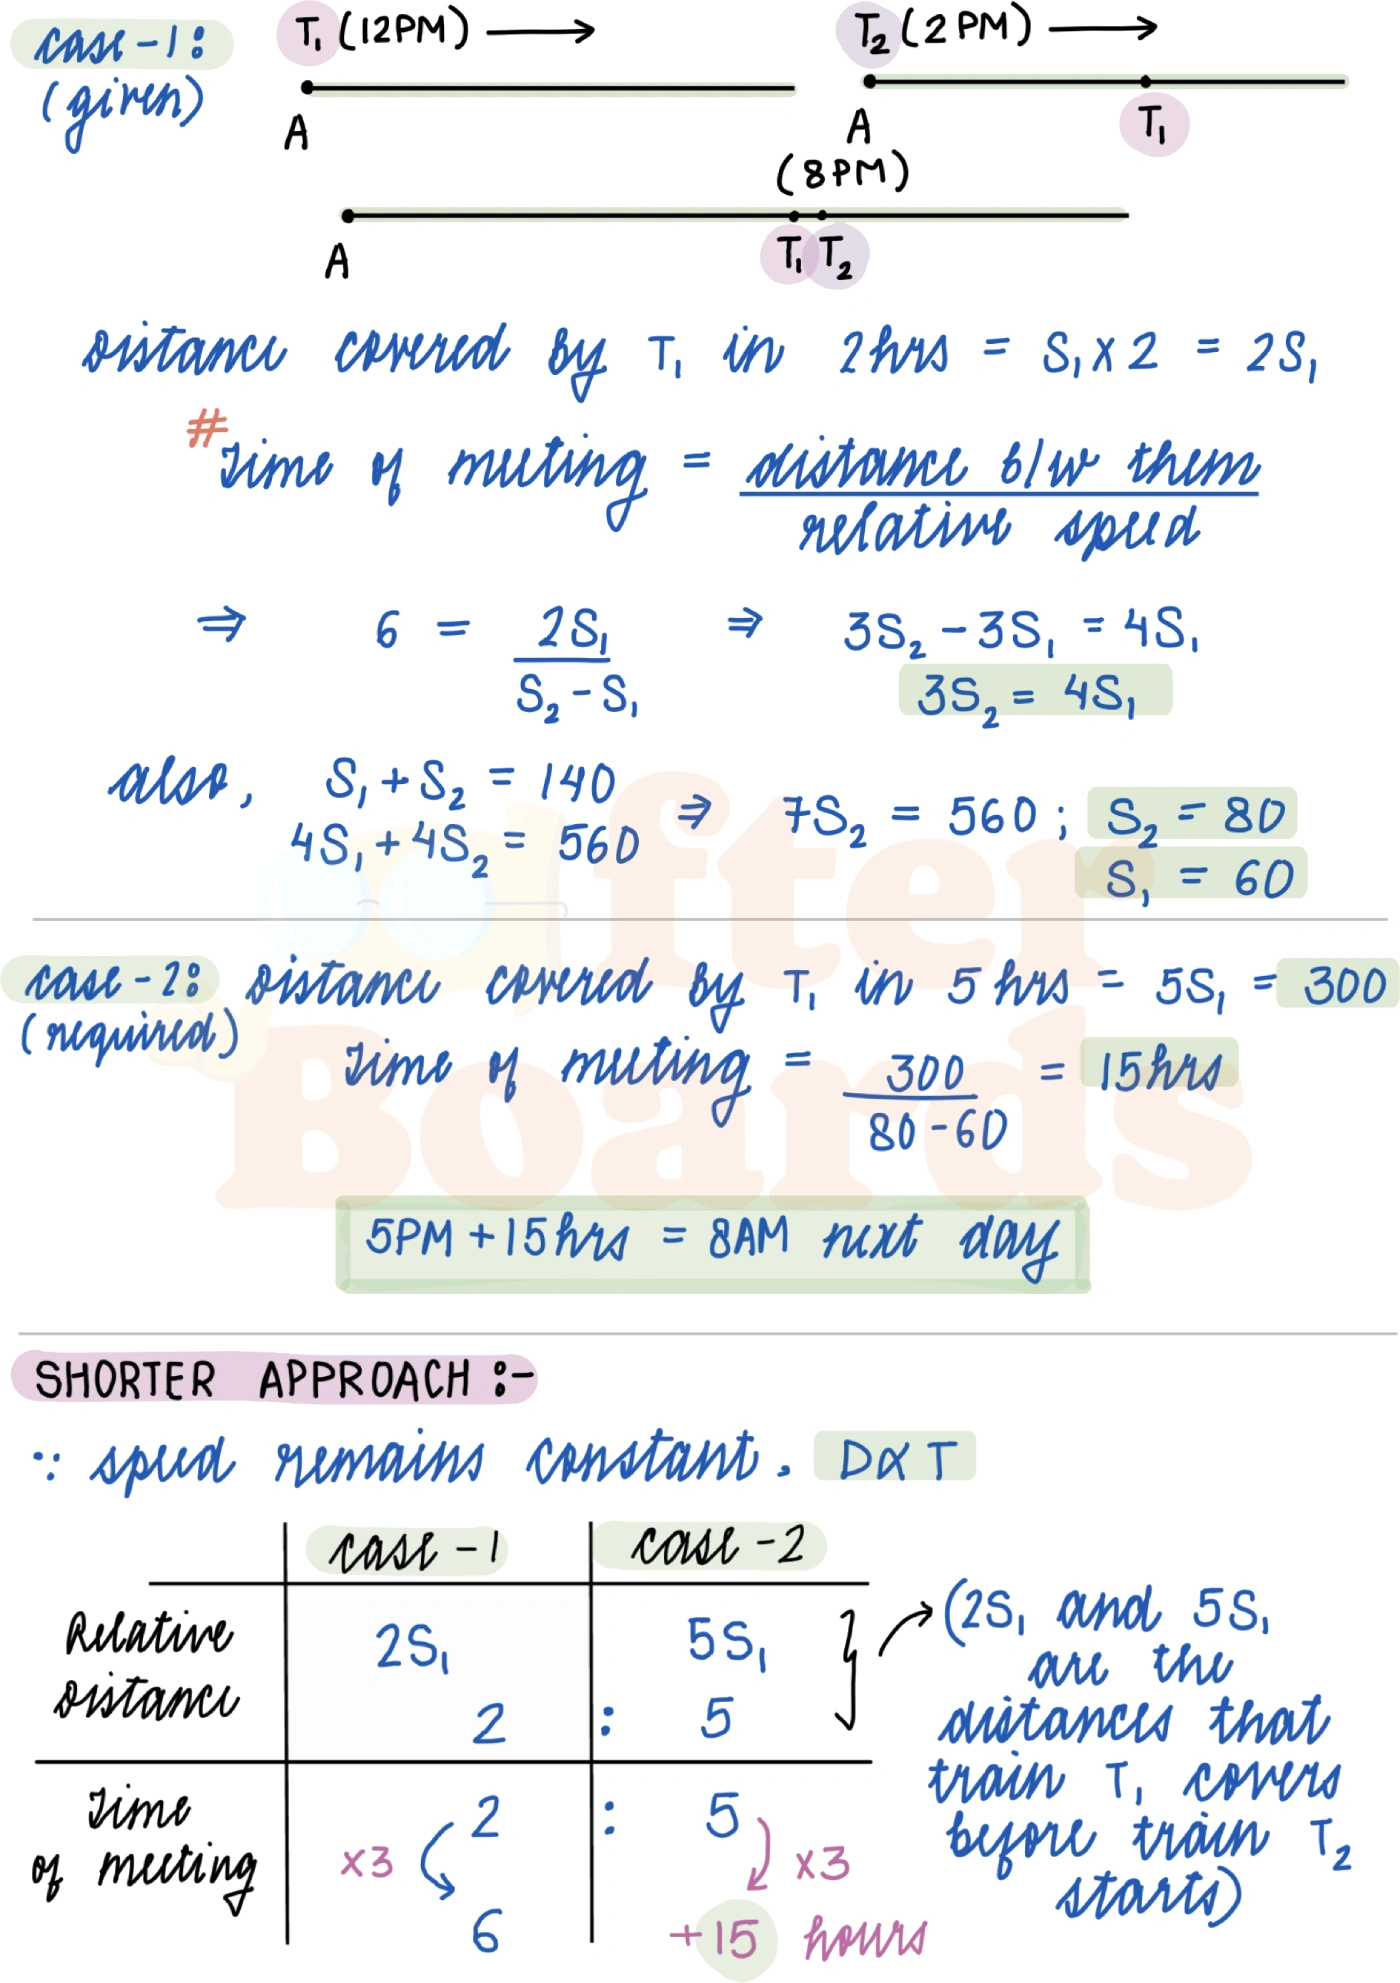 case-1:
(given)
T₁ (12PM) ⟶
A
T₂ (2 PM) ⟶
A
T₁
(8PM)
A
T₁ T₂
Distance covered by T₁ in 2hrs = S₁ x 2 = 2S₁
# Time of meeting = distance b/w them / relative speed
⇒ 6 = 2S₁ / S₂ - S₁ ⇒ 3S₂ - 3S₁ = 4S₁
3S₂ = 4S₁
also, S₁ + S₂ = 140
4S₁ + 4S₂ = 560 ⇒ 7S₂ = 560 ; S₂ = 80
S₁ = 60
case-2: Distance covered by T₁ in 5 hrs = 5S₁ = 300
(required)
Time of meeting = 300 / 80 - 60 = 15hrs
5PM + 15hrs = 8AM next day
SHORTER APPROACH :-
∵ speed remains constant. D∝T
case-1 case-2
Relative Distance
2S₁ 5S₁
2 : 5
Time of meeting
2 : 5
x3 x3
6 +15 hours
(2S₁ and 5S₁
are the
distances that
train T₁ covers
before train T₂
starts)
after
Boards